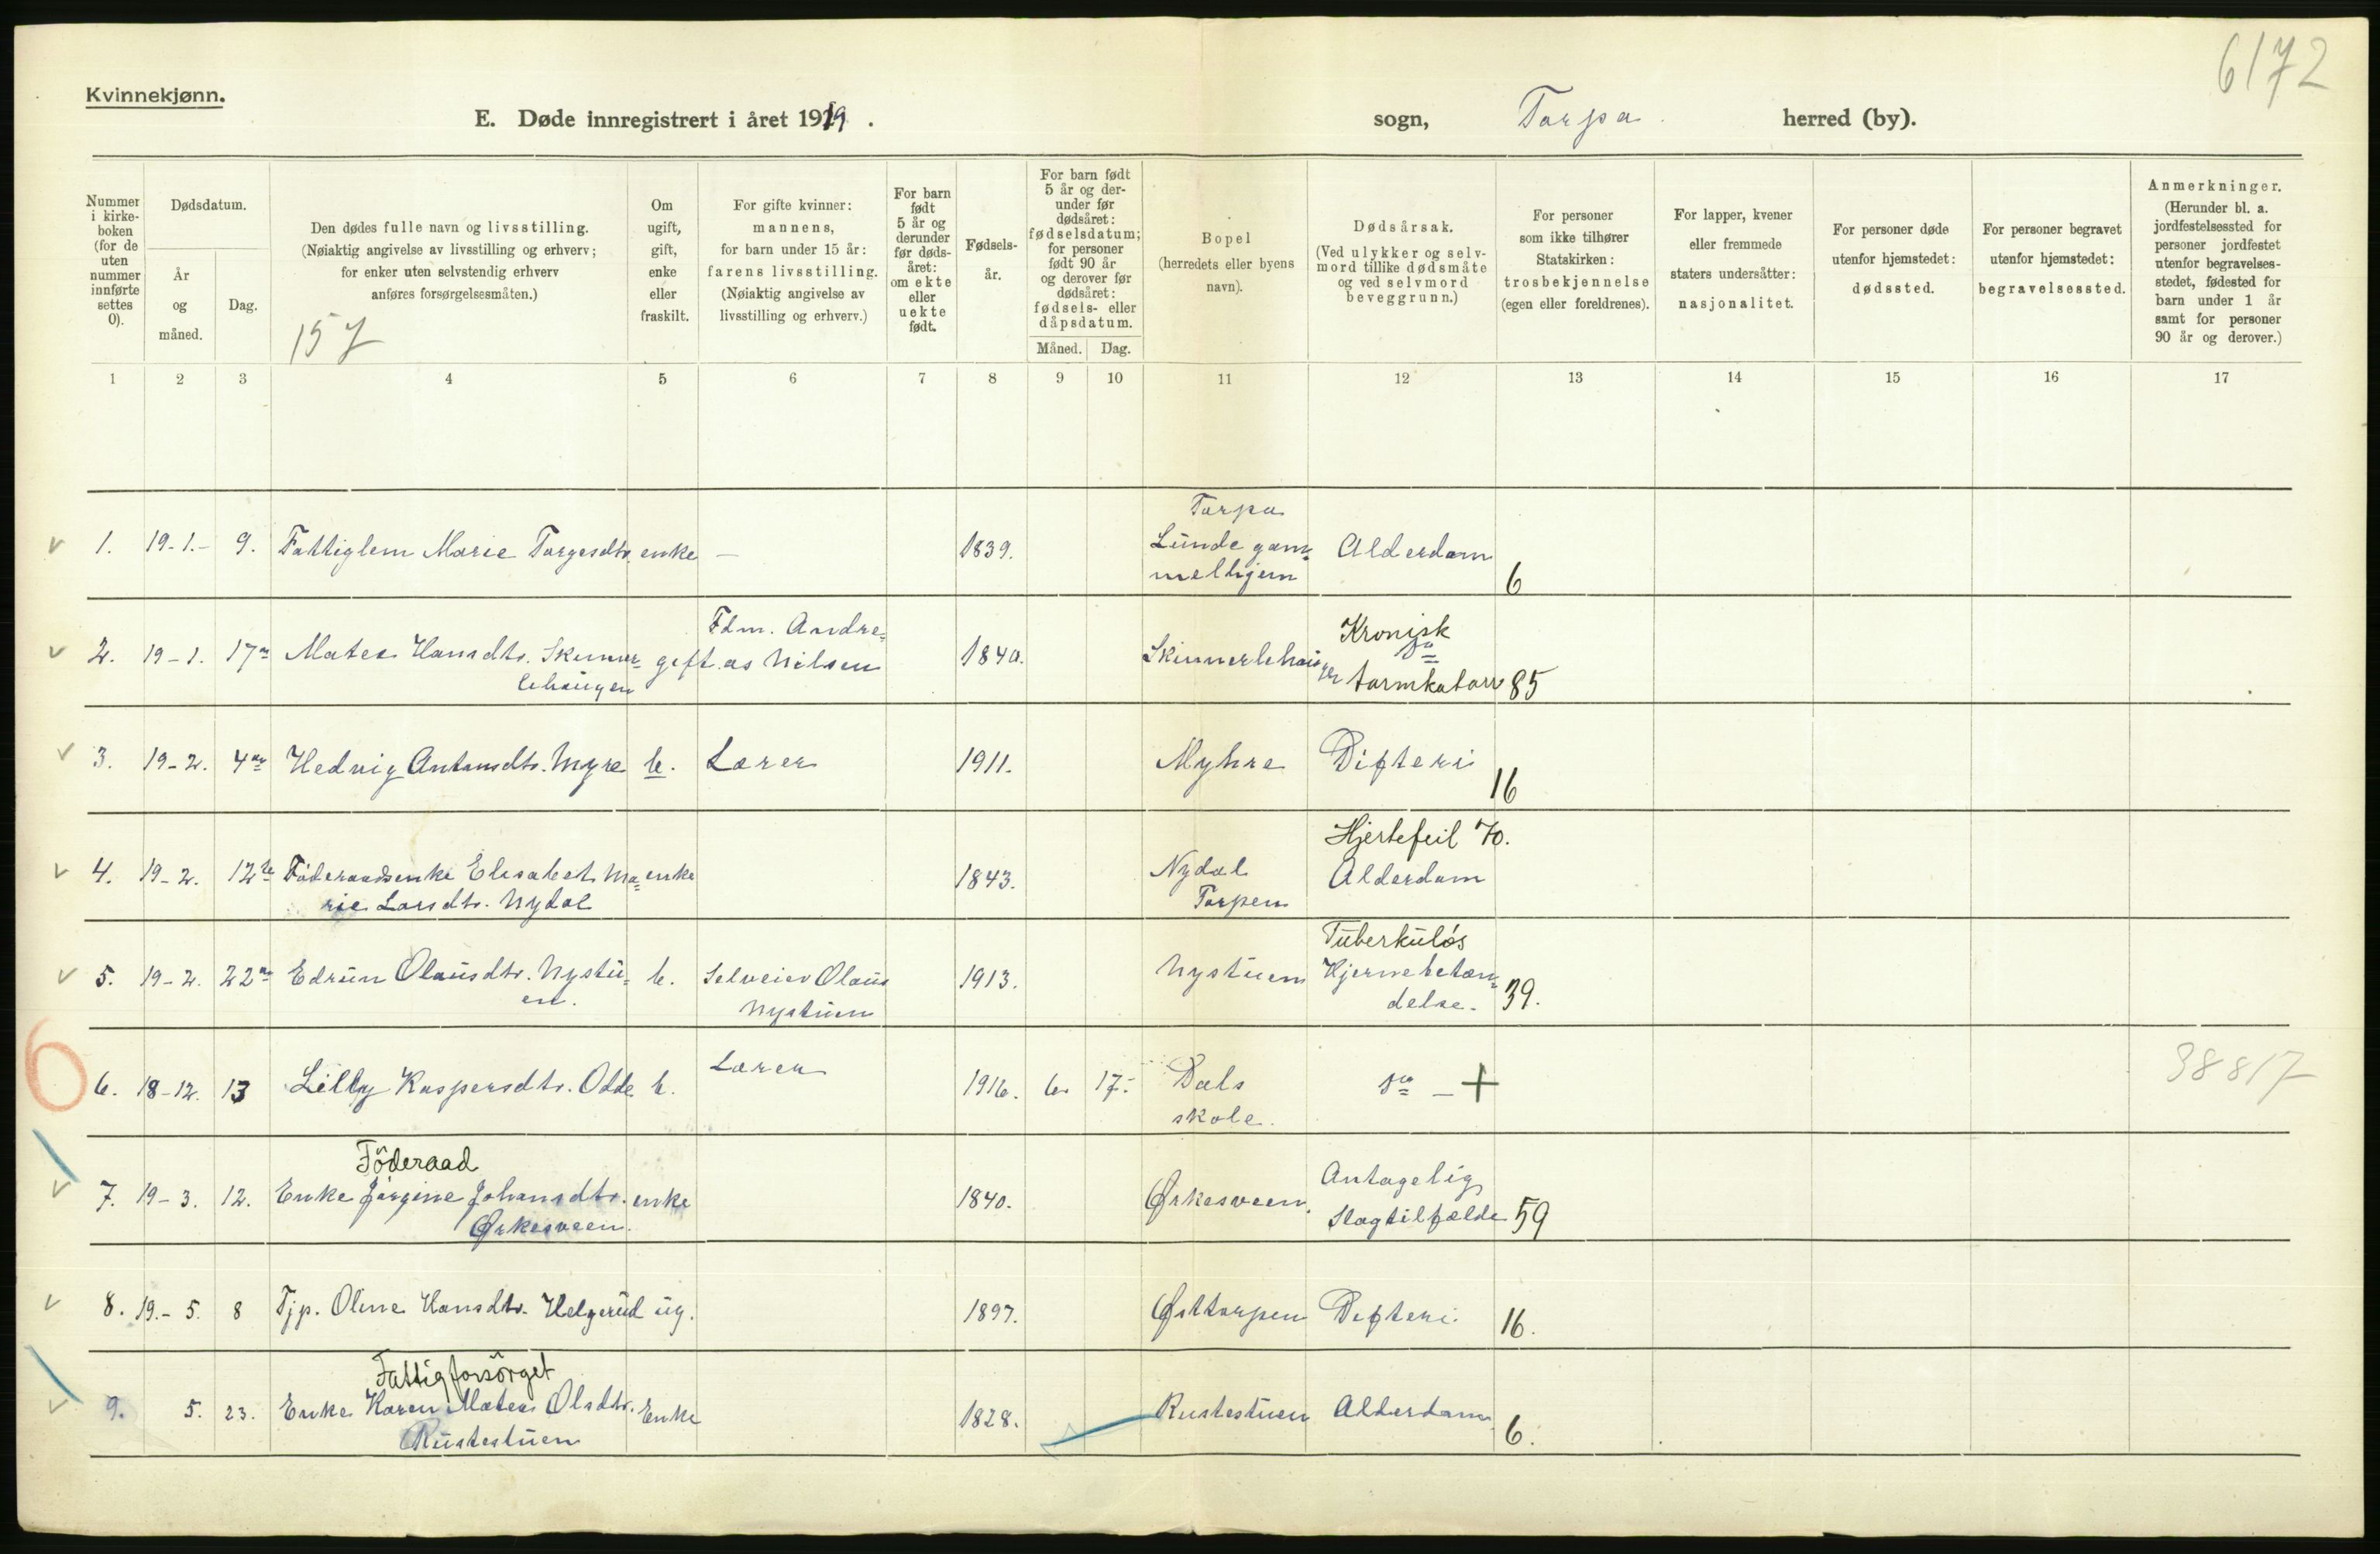 6172
Kvinnekjønn.
E. Døde innregistrert i året 1919 . sogn, Torpa. herred (by).
Nummer i kirke-boken (for de uten nummer innførte settes 0).
Dødsdatum.
År og måned.
Dag.
Den dødes fulle navn og livsstilling.
(Nøiaktig angivelse av livsstilling og erhverv;
for enker uten selvstendig erhverv
anføres forsørgelsesmåten.)
157
Om ugift, gift, enke eller fraskilt.
For gifte kvinner:
mannens,
for barn under 15 år:
farens livsstilling.
(Nøiaktig angivelse av
livsstilling og erhverv.)
For barn født 5 år og derunder før døds-året: om ekte eller uekte født.
Fødsels-år.
For barn født 5 år og der-under før dødsåret: fødselsdatum; for personer født 90 år og derover før dødsåret: fødsels- eller dåpsdatum.
Måned. Dag.
Bopel
(herredets eller byens
navn).
Dødsårsak.
(Ved ulykker og selv-
mord tillike dødsmåte
og ved selvmord
beveggrunn.)
For personer
som ikke tilhører
Statskirken:
trosbekjennelse
(egen eller foreldrenes).
For lapper, kvener
eller fremmede
staters undersåtter:
nasjonalitet.
For personer døde
utenfor hjemstedet:
dødssted.
For personer begravet
utenfor hjemstedet:
begravelsessted.
Anmerkninger.
(Herunder bl. a.
jordfestelsessted for
personer jordfestet
utenfor begravelses-
stedet, fødested for
barn under 1 år
samt for personer
90 år og derover.)
1 2 3 4 5 6 7 8 9 10 11 12 13 14 15 16 17
Torpa
1. 19-1.- 9. Fattiglem Marie Torgesdtr. enke — 1839. Lunde gam- Alderdom
melhjem 6
Fdm. Andre- Kronisk
2. 19-1. 17de Mates Hansdtr. Skinner- gift. as Nilsen 1840. Skinnerlehaugen
lehaugen tarmkatarr 85
3. 19-2. 4de Hedvig Antonsdtr. Myre b. Lærer 1911. Myhre Difteri
16
Hjertefeil 70.
4. 19-2. 12te Föderaadsenke Elisabet Ma- enke 1843. Nydal Alderdom
rie Larsdtr. Nydal Torpen
Tuberkuløs
5. 19-2. 22de Edrun Olausdtr. Nystu- b. Selveier Olaus 1913. Nystuen Hjernebetæn-
en. Nystuen delse. 39.
6 Lærer
6. 18-12. 13 Lilly Kaspersdtr. Odde b. 1916. 6. 17. Dals do — + 38817
skole.
Föderaad Antagelig
7. 19-3. 12. Enke Jörgine Johansdtr. enke 1840. Ørkesveen. Slagtilfælde 59
Ørkesveen.
8. 19.-5. 8 Tjp. Oline Hansdtr. Helgerud ug. 1897. Østtorpen Difteri. 16.
Fattigforsörget
9. 5. 23. Enke Karen Mates Olsdtr. Enke 1828. Rustestuen Alderdom 6.
Rustestuen